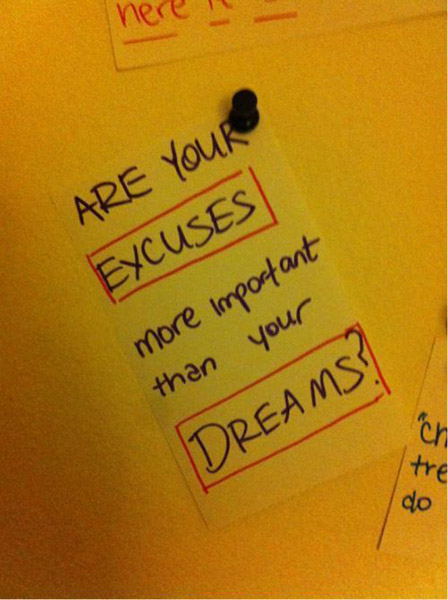 here
ARE YOUR
EXCUSES
more important
than your
DREAMS?
"Ch
tre
do